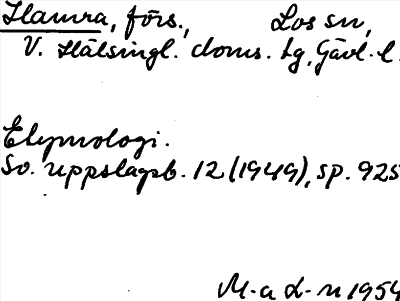 Hamra, förs., Los sn,
V. Hälsingl. doms. tg, Gävl. l.
Etymologi.
Sv. uppslagsb. 12 (1949), sp. 925
M-a L-n 1954